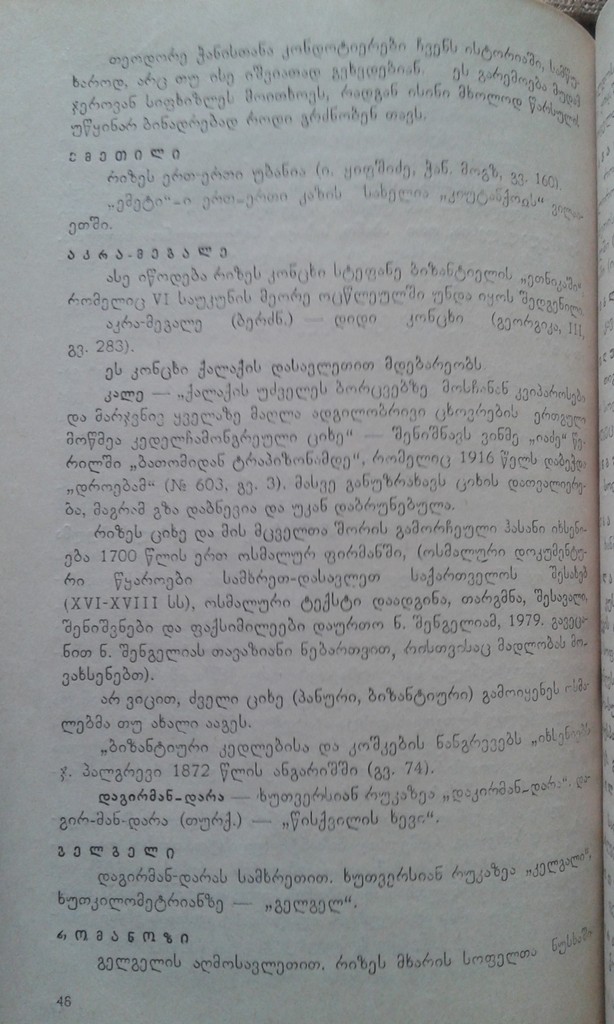 თეოდორე ჭანისთანა კონდოტიერები ჩვენს ისტორიაში, სამწუ-
ხაროდ, არც თუ ისე იშვიათად გვხვდებიან. ეს გარემოება მუდამ
ჯეროვან სიფხიზლეს მოითხოვს, რადგან ისინი მხოლოდ წარსულის
უწყინარ ბინადრებად როდი გრძნობენ თავს.
ემეთილი
რიზეს ერთ-ერთი უბანია (ი. ყიფშიძე, ჭან. მოგზ, გვ. 160).
„ემეტი“-ი ერთ-ერთი კაზის სახელია
ეთში.
აკრა-მეგალე
ასე იწოდება რიზეს კონცხი სტეფანე ბიზანტიელის „ეთნიკაში“
რომელიც VI საუკუნის მეორე ოცწლეულში უნდა იყოს შედგენილი
აკრა-მეგალე (ბერძნ.) — დიდი კონცხი (გეორგიკა, III,
გვ. 283).
ეს კონცხი ქალაქის დასავლეთით მდებარეობს.
კალე — „ქალაქის უძველეს ბორცვებზე მოსჩანან კვიპაროსები
და მარჯვნივ ყველაზე მაღლა ადგილობრივი ცხოვრების ერთგული
მოწმეა კედელჩამონგრეული ციხე“ — შენიშნავს ვინმე „იაძე“ წე-
რილში „ბათომიდან ტრაპიზონამდე“, რომელიც 1916 წელს დაბეჭდა
„დროებამ“ (№ 603, გვ. 3). მასვე განუზრახავს ციხის დათვალიერე-
ბა, მაგრამ გზა დაბნევია და უკან დაბრუნებულა.
რიზეს ციხე და მის მცველთა შორის გამორჩეული ჰასანი იხსენი-
ება 1700 წლის ერთ ოსმალურ ფირმანში, (ოსმალური დოკუმენტუ-
რი წყაროები სამხრეთ-დასავლეთ საქართველოს შესახებ
(XVI-XVIII სს), ოსმალური ტექსტი დაადგინა, თარგმნა, შესავალი,
შენიშვნები და ფაქსიმილეები დაურთო ნ. შენგელიამ, 1979. გავეცა-
ნით ნ. შენგელიას თავაზიანი ნებართვით, რისთვისაც მადლობას მო-
ვახსენებთ).
არ ვიცით, ძველი ციხე (ჰანური, ბიზანტიური) გამოიყენეს ოსმა-
ლებმა თუ ახალი ააგეს.
„ბიზანტიური კედლებისა და კოშკების ნანგრევებს „იხსენიებს
ჯ. პალგრევი 1872 წლის ანგარიშში (გვ. 74).
დაგირმან-დარა — ხუთვერსიან რუკაზეა „დაკირმან-დარა“. და-
გირ-მან-დარა (თურქ.) — „წისქვილის ხევი“.
გელგელი
დაგირმან-დარას სამხრეთით. ხუთვერსიან რუკაზეა „კელგალი“,
ხუთკილომეტრიანზე — „გელგელ“.
რომანოზი
გელგელის აღმოსავლეთით. რიზეს მხარის სოფელთა ნუსხაში
46